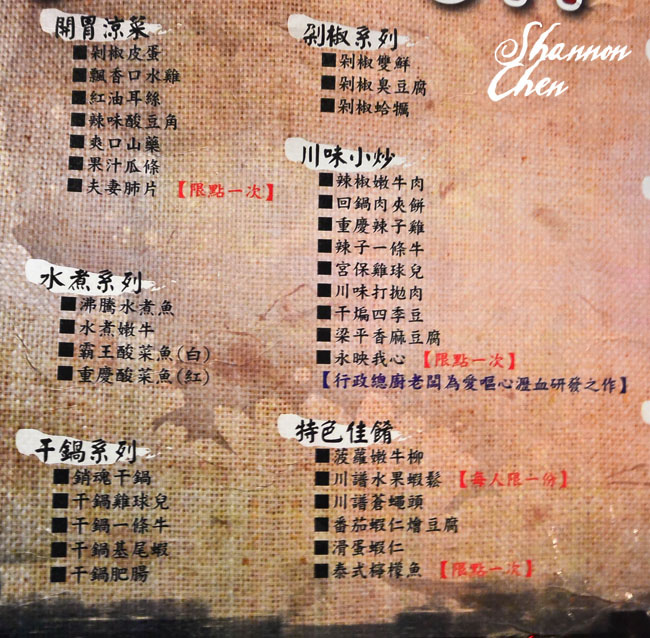 開胃涼菜
■剁椒皮蛋
■飄香口水雞
■紅油耳絲
■辣味酸豆角
■爽口山藥
■果汁瓜條
■夫妻肺片【限點一次】
水煮系列
■沸騰水煮魚
■水煮嫩牛
■霸王酸菜魚(白)
■重慶酸菜魚(紅)
干鍋系列
■銷魂干鍋
■干鍋雞球兒
■干鍋一條牛
■干鍋基尾蝦
■干鍋肥腸
剁椒系列
■剁椒雙鮮
■剁椒臭豆腐
■剁椒蛤蠣
川味小炒
■辣椒嫩牛肉
■回鍋肉夾餅
■重慶辣子雞
■辣子一條牛
■宮保雞球兒
■川味打拋肉
■干煸四季豆
■梁平香麻豆腐
■永映我心【限點一次】
【行政總廚老闆為愛嘔心瀝血研發之作】
特色佳餚
■菠蘿嫩牛柳
■川譜水果蝦鬆【每人限一份】
■川譜蒼蠅頭
■番茄蝦仁燴豆腐
■滑蛋蝦仁
■泰式檸檬魚【限點一次】
Shannon
Chen